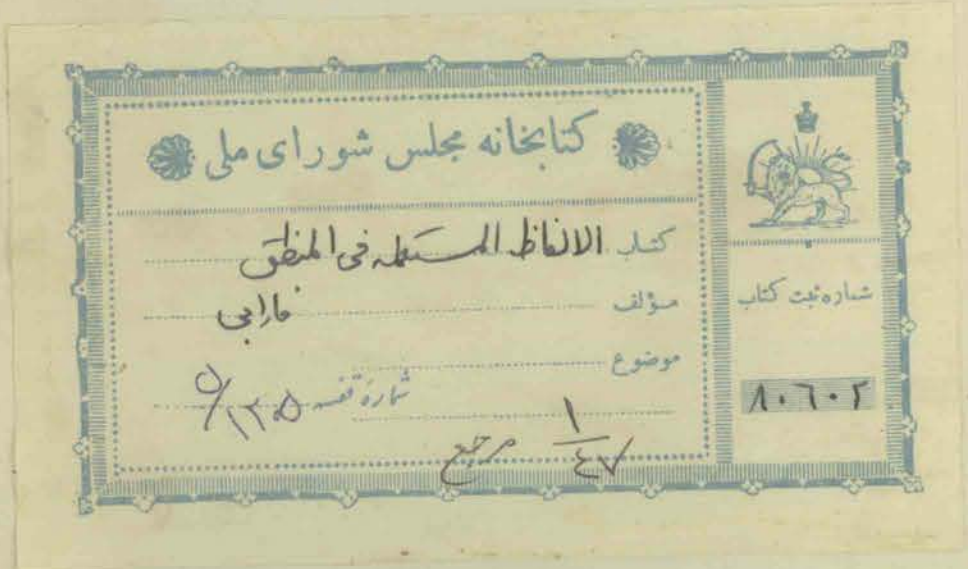 کتابخانه مجلس شورای ملی
کتاب الالفاظ المستعمله فی المنطق
مؤلف فارابی
موضوع
شماره قفسه
۱/۴۷ مرجع
شماره ثبت کتاب
۸۰۶۰۲